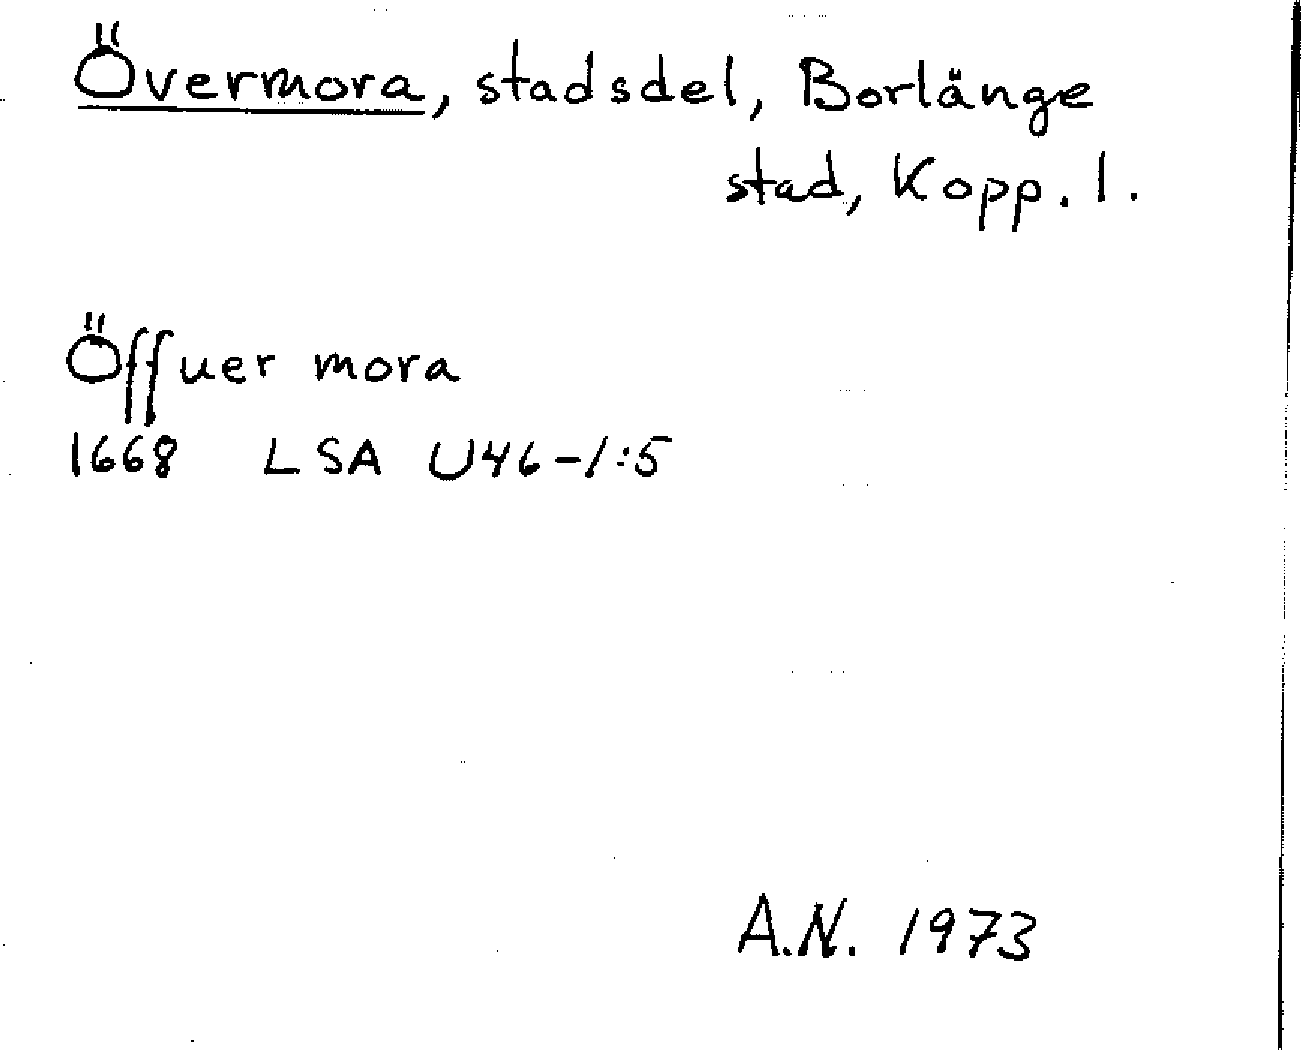 Övermora, stadsdel, Borlänge
stad, Kopp. l.
Öffuer mora
1668 LSA U46-1:5
A.N. 1973